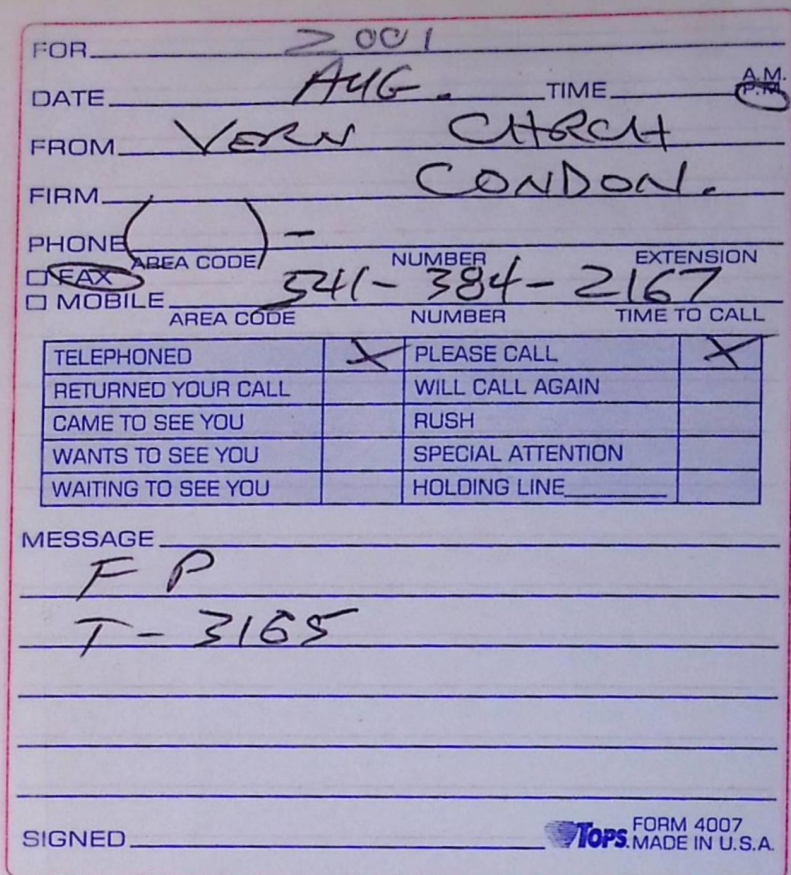 FOR 2001
DATE AUG. TIME A.M. P.M.
FROM VERN CHRCH
FIRM CONDON.
PHONE ( ) -
AREA CODE NUMBER EXTENSION
☐ FAX
☐ MOBILE 541-384-2167
AREA CODE NUMBER TIME TO CALL
TELEPHONED X PLEASE CALL X
RETURNED YOUR CALL WILL CALL AGAIN
CAME TO SEE YOU RUSH
WANTS TO SEE YOU SPECIAL ATTENTION
WAITING TO SEE YOU HOLDING LINE
MESSAGE
F P
T - 3165
SIGNED TOPS. FORM 4007
MADE IN U.S.A.